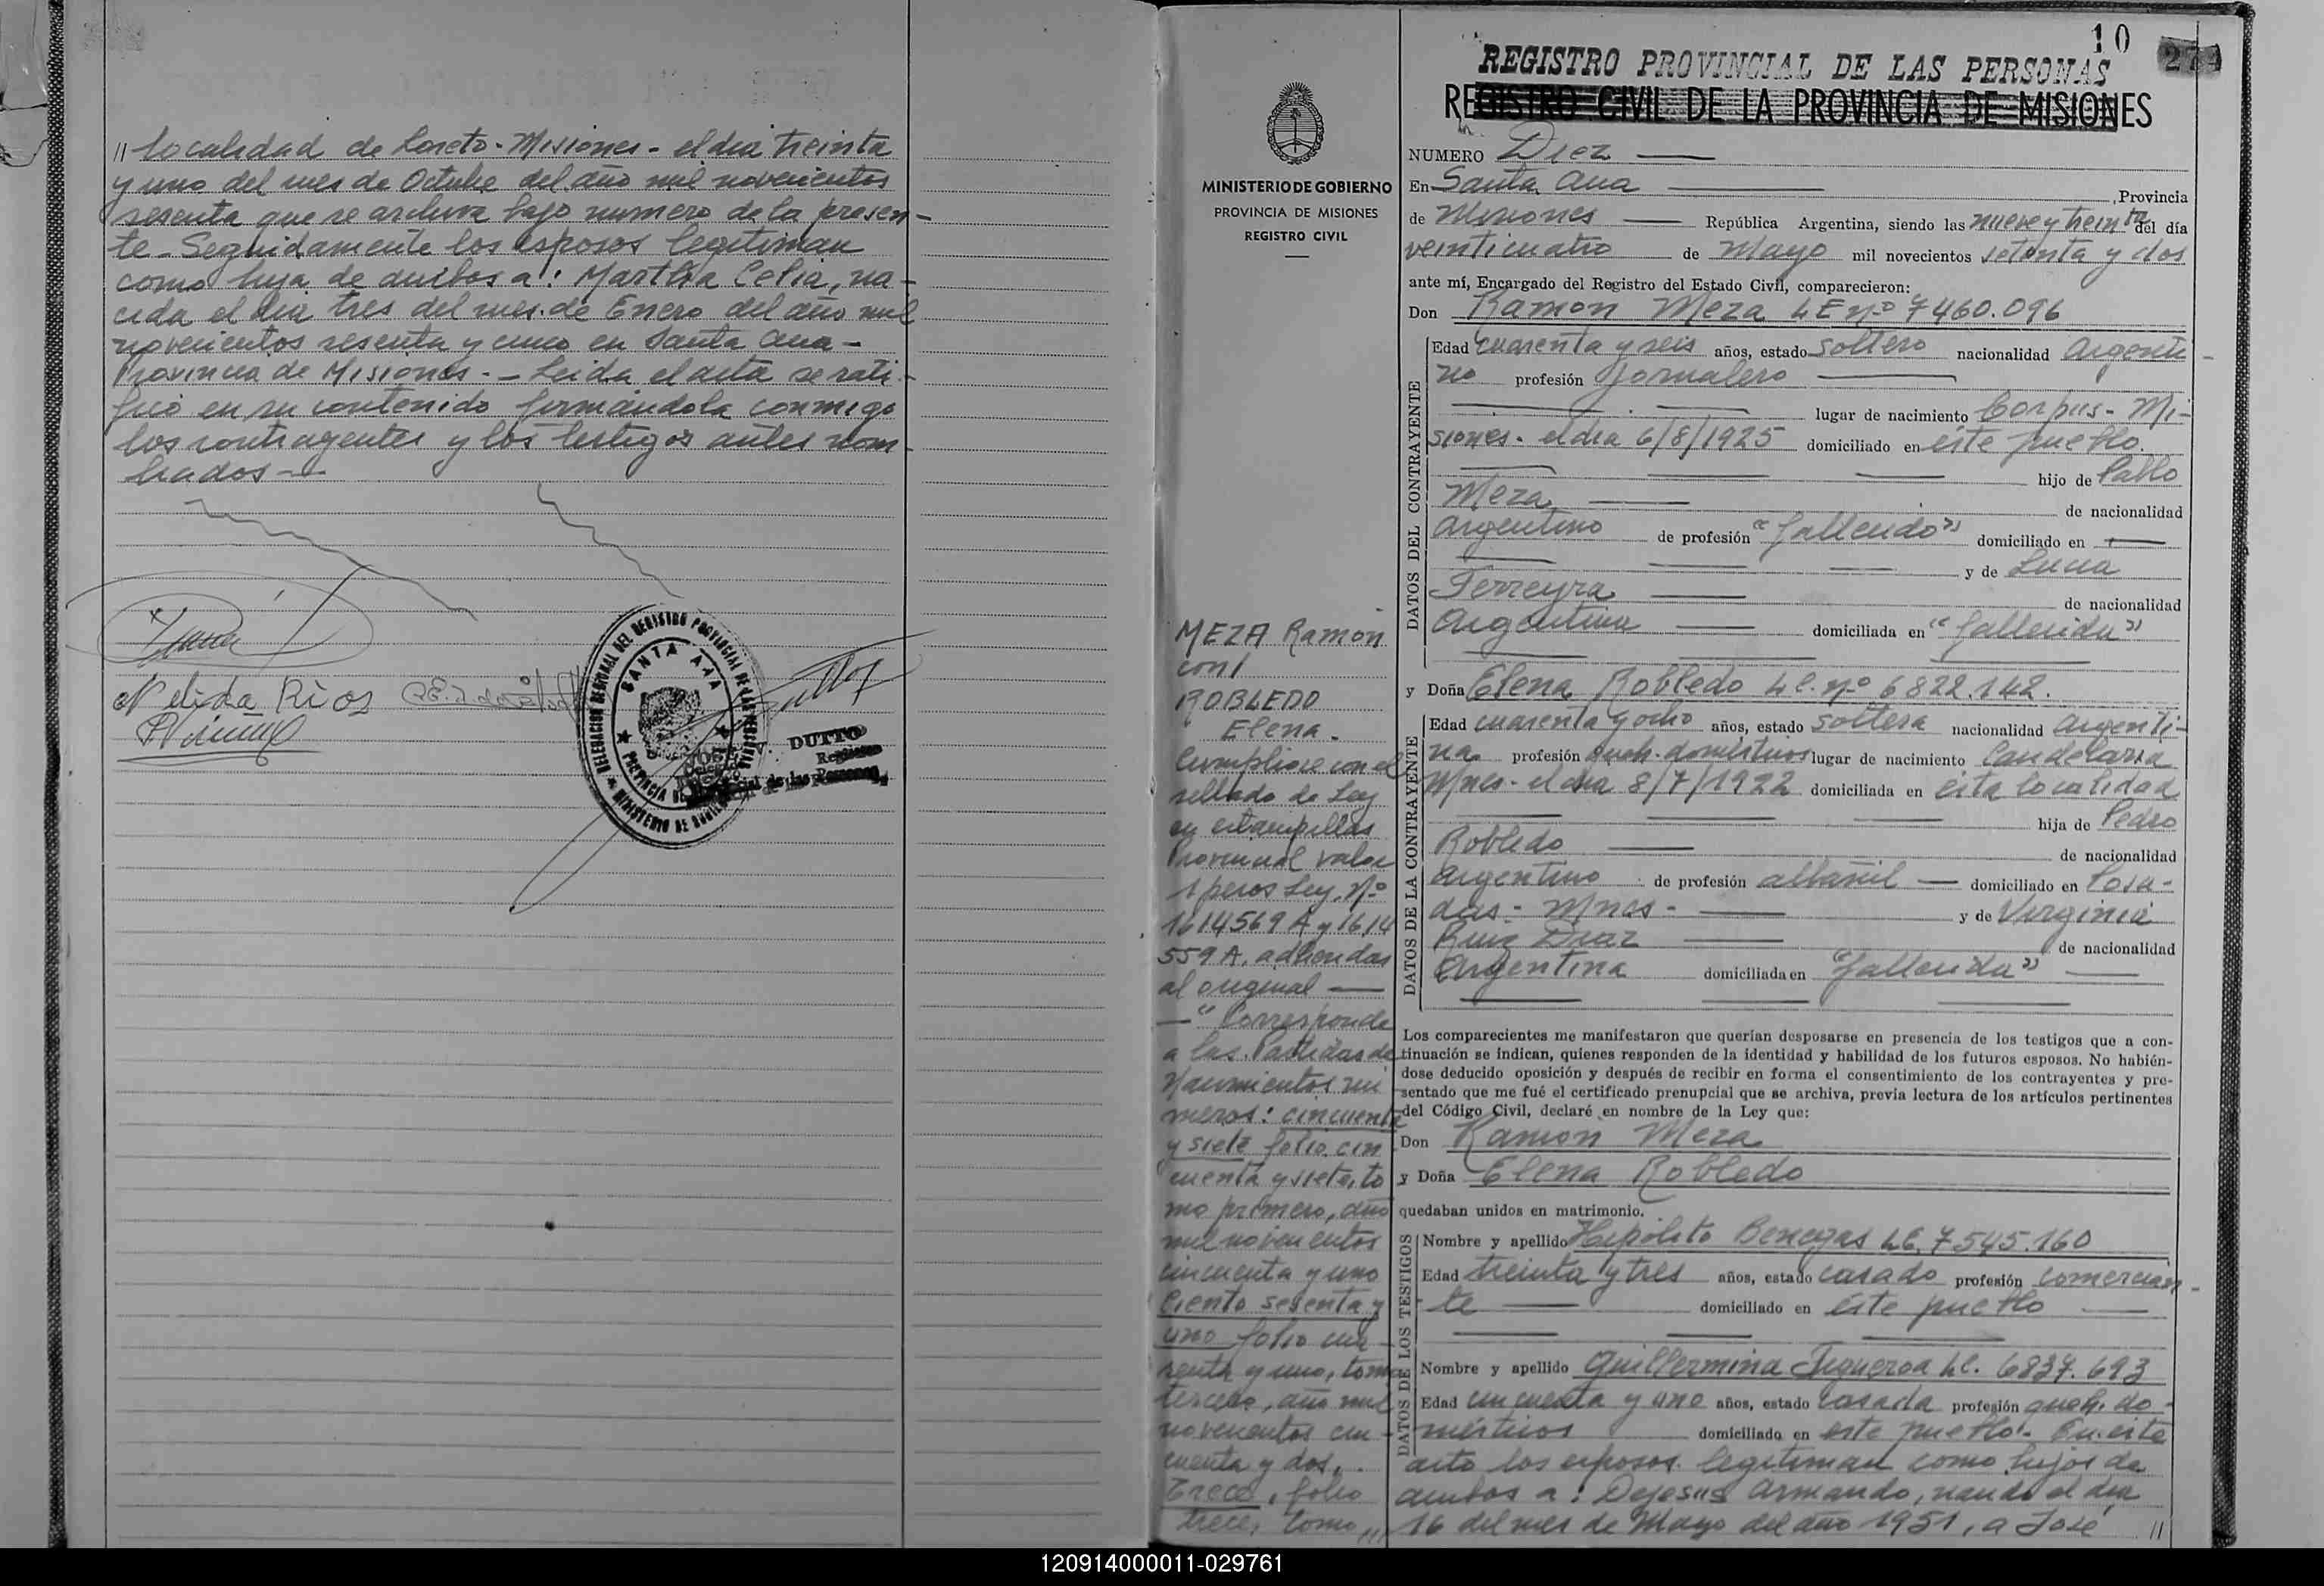 " localidad de Loreto-Misiones- el dia treinta
y uno del mes de Octubre del año mil novecientos
sesenta que se archiva bajo numero de la presen-
te- Seguidamente los esposos legitiman
como hija de ambos a: Martha Celia, na-
cida el dia tres del mes de Enero del año mil
novecientos sesenta y cinco en Santa Ana-
Provincia de Misiones.- Leida el acta se rati-
ficó en su contenido firmándola conmigo
los contrayentes y los testigos antes nom-
brados-
Nelida Rios
DELEGACION REGIONAL DEL REGISTRO PROVINCIAL DE LAS PERSONAS
SANTA ANA
PROVINCIA DE
MINISTERIO DE
DUTTO
10
REGISTRO PROVINCIAL DE LAS PERSONAS
REGISTRO CIVIL DE LA PROVINCIA DE MISIONES
MINISTERIO DE GOBIERNO
PROVINCIA DE MISIONES
REGISTRO CIVIL
NUMERO Diez
En Santa Ana , Provincia
de Misiones República Argentina, siendo las nueve y treinta del día
veinticuatro de Mayo mil novecientos setenta y dos
ante mí, Encargado del Registro del Estado Civil, comparecieron:
Don Ramon Meza LE nº 7460.096
DATOS DEL CONTRAYENTE
Edad cuarenta y seis años, estado soltero nacionalidad argenti-
no profesión jornalero
lugar de nacimiento Corpus- Mi-
siones. el dia 6/8/1925 domiciliado en este pueblo.
hijo de Pablo
Meza de nacionalidad
argentino de profesión "fallecido" domiciliado en
y de Lucia
Ferreyra de nacionalidad
Argentina domiciliada en "fallecida"
y Doña Elena Robledo LC. nº 6822.142.
DATOS DE LA CONTRAYENTE
Edad cuarenta y ocho años, estado soltera nacionalidad argenti-
na profesión queh. domésticos lugar de nacimiento Candelaria
Mnes- el dia 8/7/1922 domiciliada en esta localidad
hija de Pedro
Robledo de nacionalidad
argentino de profesión albañil domiciliado en Posa-
das- Mnes- y de Virginia
Ruiz Diaz de nacionalidad
Argentina domiciliada en "fallecida"
Los comparecientes me manifestaron que querían desposarse en presencia de los testigos que a con-
tinuación se indican, quienes responden de la identidad y habilidad de los futuros esposos. No habién-
dose deducido oposición y después de recibir en forma el consentimiento de los contrayentes y pre-
sentado que me fué el certificado prenupcial que se archiva, previa lectura de los artículos pertinentes
del Código Civil, declaré en nombre de la Ley que:
Don Ramon Meza
y Doña Elena Robledo
quedaban unidos en matrimonio.
DATOS DE LOS TESTIGOS
Nombre y apellido Hipólito Benegas LE. 7545.160
Edad treinta y tres años, estado casado profesión comercian-
te domiciliado en este pueblo
Nombre y apellido Guillermina Figueroa LC. 6837.693
Edad cincuenta y uno años, estado casada profesión queh. do-
mésticos domiciliado en este pueblo.- En este
acto los esposos legitiman como hijos de
ambos a: Dejesus Armando, nacido el dia
16 del mes de Mayo del año 1951, a José "
MEZA Ramon
con/
ROBLEDO
Elena.
Cumpliose con el
sellado de Ley
en estampillas
Provincial valor
1 pesos Ley. Nº
1614569 A y 1614
559 A. adheridas
al original
-"Corresponde
a las Partidas de
Nacimientos nú
meros: cincuenta
y siete folio cin
cuenta y siete, to
mo primero, año
mil novecientos
cincuenta y uno
Ciento sesenta y
uno folio
senta y uno, tomo
tercero, año mil
novecientos cin-
cuenta y dos,
Trece, folio
trece, tomo "
120914000011-029761